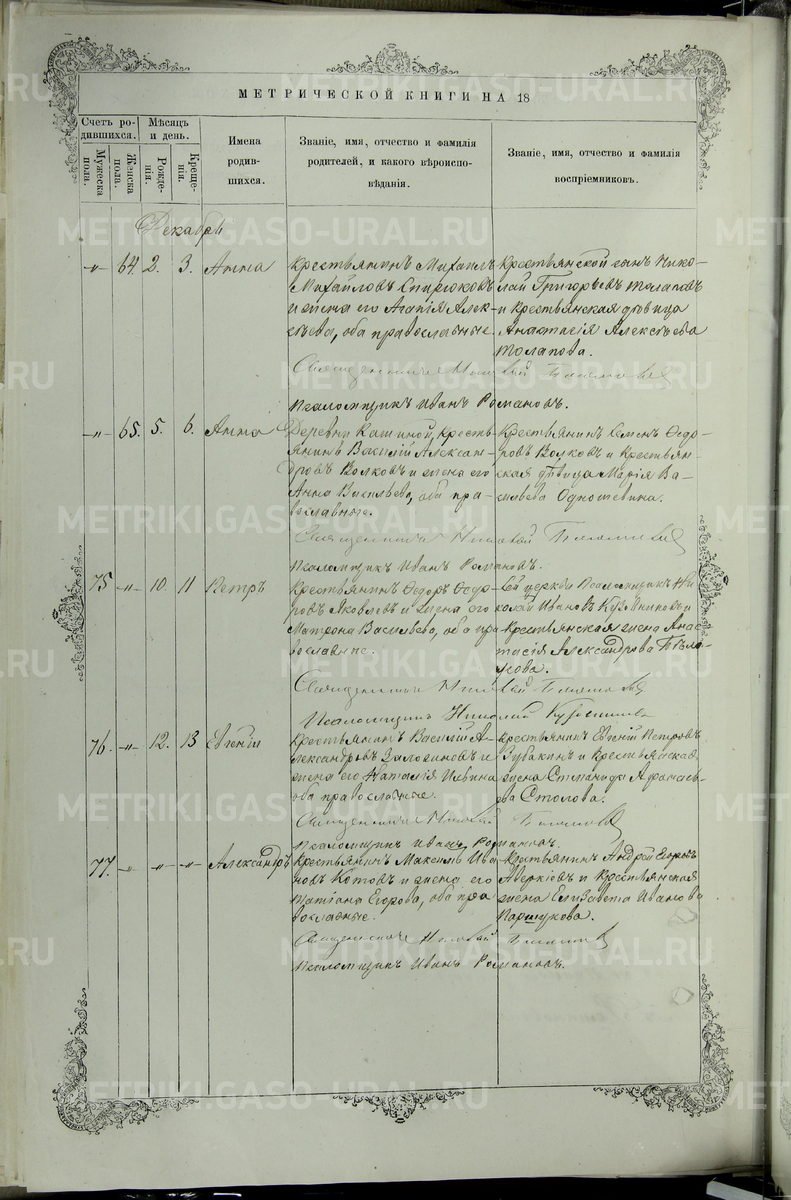 МЕТРИЧЕСКОЙ КНИГИ НА 18
Счетъ ро-
дившихся.
Мужеска
пола.
Женска
пола.
Мѣсяцъ
и день.
Рожде-
нія.
Креще-
нія.
Имена
родив-
шихся.
Званіе, имя, отчество и фамилія
родителей, и какого вѣроиспо-
вѣданія.
Званіе, имя, отчество и фамилія
воспріемниковъ.
Декабрь
-"- 64. 2. 3. Анна
Крестьянинъ Михаилъ
Михайловъ
и жена его Агапія Алек-
сѣева, оба православные.
Крестьянской сынъ Нико-
лай Григорьевъ
и крестьянская дѣвица
Анастасія Алексѣева
Священникъ Николай
Псаломщикъ Иванъ Романовъ.
-"- 65. 5. 6. Анна
Деревни Кашиной, кресть-
янинъ Василій Алексан-
дровъ Волковъ и жена его
Анна Васильева, оба пра-
вославные.
Крестьянинъ Семенъ Ѳедо-
ровъ Волковъ и крестьян-
ская дѣвица Марія Ва-
сильева
Священникъ Николай
Псаломщикъ Иванъ Романовъ.
75 -"- 10. 11 Петръ
Крестьянинъ Ѳедоръ Ѳедо-
ровъ Яковлевъ и жена его
Матрона Васильева, оба пра
вославные.
Сей церкви Псаломщикъ Ни
колай Ивановъ Кузовниковъ и
Крестьянская жена Анас
тасія Александрова Бѣло
усова.
Священникъ Николай
Псаломщикъ Николай Кузовниковъ
76. -"- 12. 13 Евгеній
Крестьянинъ Василій А-
лександровъ и
жена его Наталія Ильина
оба православные.
Крестьянинъ Евгеній Петровъ
Зубакинъ и крестьянская
жена Степанида Афанась
ева
Священникъ Николай
Псаломщикъ Иванъ Романовъ.
77. -"- -"- -"- Александръ
Крестьянинъ Максимъ Ива
новъ Котовъ и жена его
Татіана Егорова, оба пра
вославные.
Крестьянинъ Андрей Егоровъ
Аверкіевъ и крестьянская
жена Елизавета Иванова
Паршукова.
Священникъ Николай
Псаломщикъ Иванъ Романовъ.
METRIKI.GASO-URAL.RU